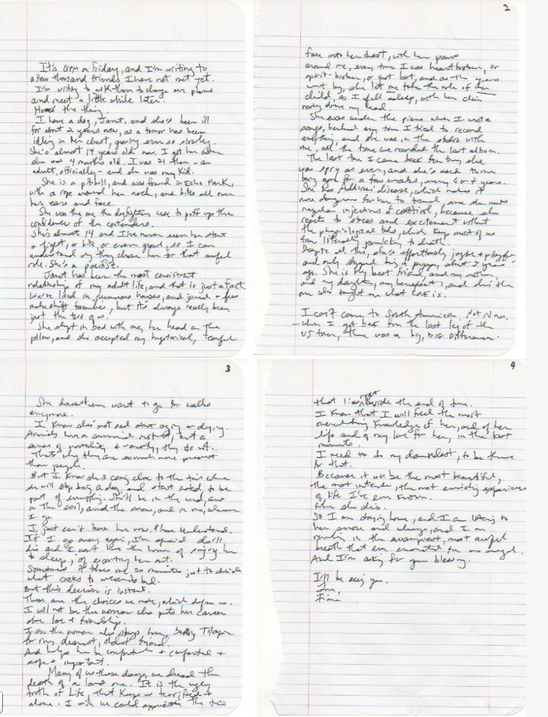 It's 6pm on Friday, and I'm writing to
a few thousand friends I have not met yet.
I'm writing to ask them to change our plans
and meet a little while later.
Here's the thing.
I have a dog, Janet, and she's been ill
for about 2 years now, as a tumor has been
idling in her chest, growing ever so slowly.
She's almost 14 years old now. I got her when
she was 4 months old. I was 21 then – an
adult, officially – and she was my kid.
She is a pitbull, and was found in Echo Park,
with a rope around her neck, and bites all over
her ears and face.
She was the one the dogfighters use to puff up the
confidence of the contenders.
She's almost 14 and I've never seen her start
a fight, or bite, or even growl, so I can
understand why they chose her for that awful
role. She's a pacifist.
Janet has been the most consistent
relationship of my adult life, and that is just a fact.
We've lived in numerous houses, and joined a few
makeshift families, but it's always really been
just the two of us.
She slept in bed with me, her head on the
pillow, and she accepted my hysterical, tearful
2
face into her chest, with her paws
around me, every time I was heartbroken, or
spirit-broken, or just lost, and as the years
went by, she let me take the role of her
child, as I fell asleep, with her chin
resting above my head.
She was under the piano when I wrote
songs, barked any time I tried to record
anything, and she was in the studio with
me, all the time we recorded the last album.
The last time I came back from tour, she
was spry as ever, and she's used to me
being gone for a few weeks, every 6 or 7 years.
She has Addison's Disease, which makes it
more dangerous for her to travel, since she needs
regular injections of cortisol, because she
reacts to stress and excitement without
the physiological tools which keep most of us
from literally panicking to death.
Despite all this, she's effortlessly joyful & playful
and only stopped acting like a puppy about 3 years
ago. She is my best friend, and my mother,
and my daughter, my benefactor, and she's the
one who taught me what love is.
I can't come to South America. Not now.
– When I got back from the last leg of the
US tour, there was a big, big difference.
3
She doesn't even want to go for walks
anymore.
I know she's not sad about aging or dying.
Animals have a survival instinct, but a
sense of mortality & vanity, they do not.
That's why they are so much more present
than people.
But I know she is coming close to the time where
we will stop being a dog, and start instead to be
part of everything. She'll be in the wind, and
in the soil, and the snow, and in me, wherever
I go.
I just can't leave her now. Please understand.
If I go away again, I'm afraid she'll
die and I won't have the honor of singing her
to sleep, of escorting her out.
Sometimes it takes me 20 minutes just to decide
what socks to wear to bed.
But this decision is instant.
These are the choices we make, which define us.
I will not be the woman who puts her career
over love & friendship.
I am the woman who stays home, baking Tilapia
for my dearest, oldest friend.
And helps her be comfortable & comforted &
safe & important.
Many of us these days, we dread the
death of a loved one. It is the ugly
truth of Life, that keeps us terrified &
alone. I wish we could appreciate the time
4
that lies right beside the end of time.
I know that I will feel the most
overwhelming knowledge of her, and of her
life and of my love for her, in the last
moments.
I need to do my damnedest, to be there
for that.
Because it will be the most beautiful,
the most intense, the most enriching experience
of life I've ever known.
When she dies.
So I am staying home, and I am listening to
her snore and wheeze, and I am
reveling in the swampiest, most awful
breath that ever emanated from an angel.
And I'm asking for your blessing.
I'll be seeing you.
Love,
Fiona